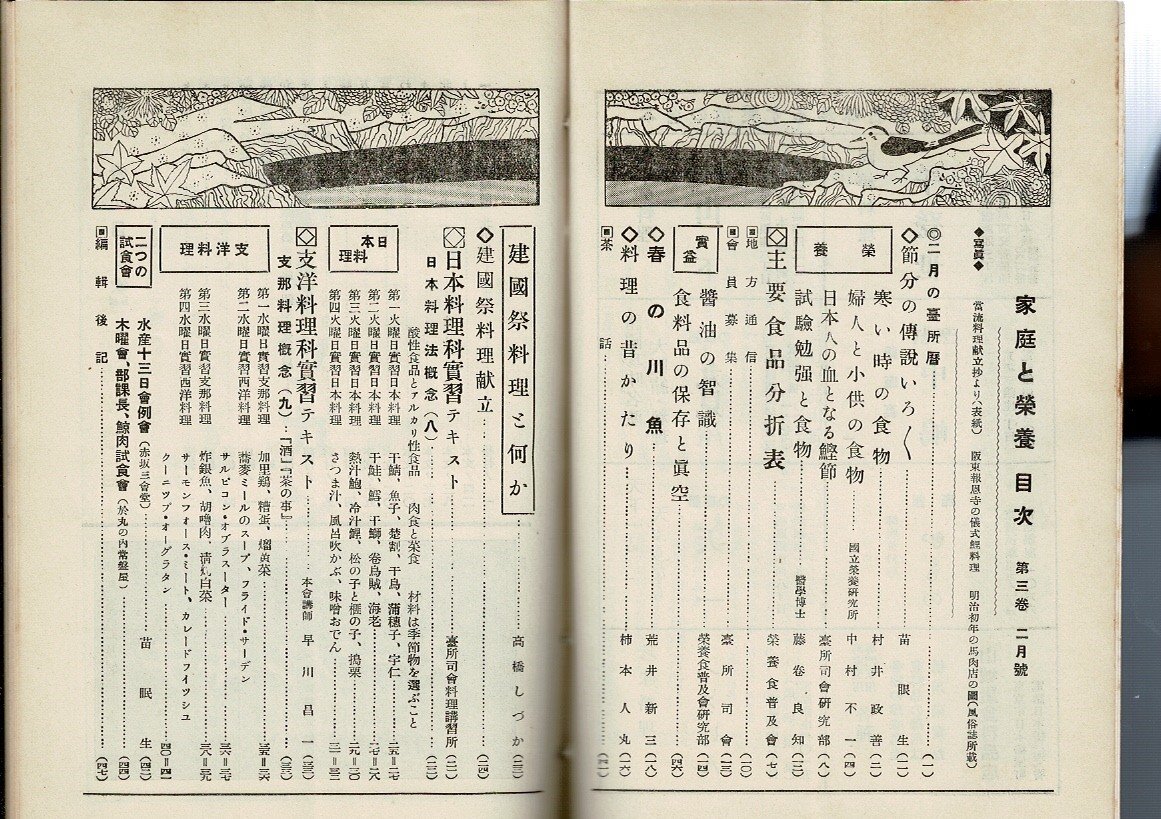 家庭と榮養 目次 第三卷 二月號
◆寫眞◆ 當流料理献立抄より(表紙) 阪東報恩寺の儀式鯉料理 明治初年の馬肉店の圖(風俗誌所載)
◎二月の臺所暦……(一)
◇節分の傳說いろ〳〵……苗眠生(一)
榮養
寒い時の食物……村井政善(二)
婦人と小供の食物……國立榮養硏究所 中村不一(四)
日本人の血となる鰹節……臺所司會硏究部(八)
試驗勉强と食物……醫學博士 藤卷良知(一三)
◇主要食品分折表……榮養食普及會(七)
▣地方通信……(一〇)
▣會員募集……臺所司會(一三)
實益
醬油の智識……榮養食普及會硏究部(一四)
食料品の保存と眞空……(四六)
◆春の川魚……荒井新三(一八)
◇料理の昔かたり……柿本人丸(一六)
▣茶話……(四一)
建國祭料理と何か……高橋しづか(二三)
◇建國祭料理献立……(二四)
◇日本料理科實習テキスト……臺所司會料理講習所(二一)
日本料理法槪念(八)……(二二)
酸性食品とアルカリ性食品 肉食と菜食 材料は季節物を選ぶこと
日本料理
第一火曜日實習日本料理 干鯖、魚子、楚割、干鳥、蒲穗子、字仁……二五=二七
第二火曜日實習日本料理 干鮭、鱈、干鰤、卷烏賊、海老……二七=二八
第三火曜日實習日本料理 熱汁鮑、冷汁鯉、松の子と榧の子、搗栗……二九=三〇
第四火曜日實習日本料理 さつま汁、風呂吹かぶ、味噌おでん……三一=三二
◇支洋料理科實習テキスト……本會講師 早川昌一(三三)
支那料理槪念(九)……『酒』『茶の事』……(三三)
支洋料理
第一水曜日實習支那料理 加里鷄、糟蛋、熘黃菜……三五=三六
第二水曜日實習西洋料理 蕎麥ミールのスープ、フライド・サーデン
サルピコン・オブラスーター……三六=三七
第三水曜日實習支那料理 炸銀魚、胡嚕肉、淸炖白菜……三八=三九
第四水曜日實習西洋料理 サーモンフォース・ミート、カレードフイツシユ
クーニツプ・オーグラタン……四〇=四一
二つの試食會
水産十三日會例會(赤坂三會堂)……苗眠生(四二)
木曜會、部課長、鯨肉試食會(於丸の内常盤屋)……(四四)
▣編輯後記……(四七)